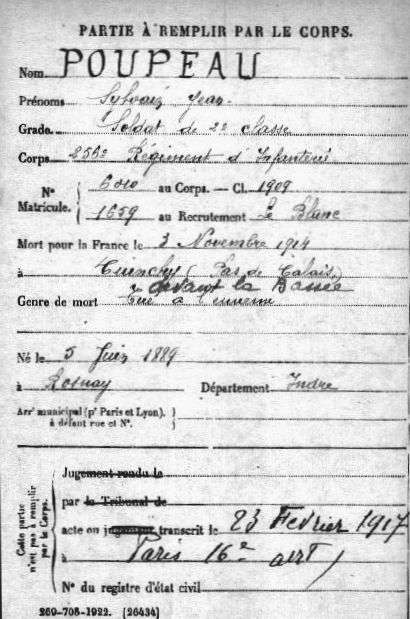 PARTIE À REMPLIR PAR LE CORPS.
Nom POUPEAU
Prénoms Sylvain Jean
Grade Soldat de 2e classe
Corps 256e Régiment d'Infanterie
N° Matricule. { 6010 au Corps. — Cl. 1909
1659 au Recrutement Le Blanc
Mort pour la France le 3 Novembre 1914
à Cuinchy (Pas de Calais)
devant la Bassée
Genre de mort Tué à l'ennemi
Né le 5 Juin 1889
à Rosnay Département Indre
Arr' municipal (p' Paris et Lyon), }
à défaut rue et N°.
Cette partie n'est pas à remplir par le Corps.
Jugement rendu le
par le Tribunal de
acte ou jugement transcrit le 23 Février 1917
à Paris 16e arrt
N° du registre d'état civil
269-708-1922. [26434]